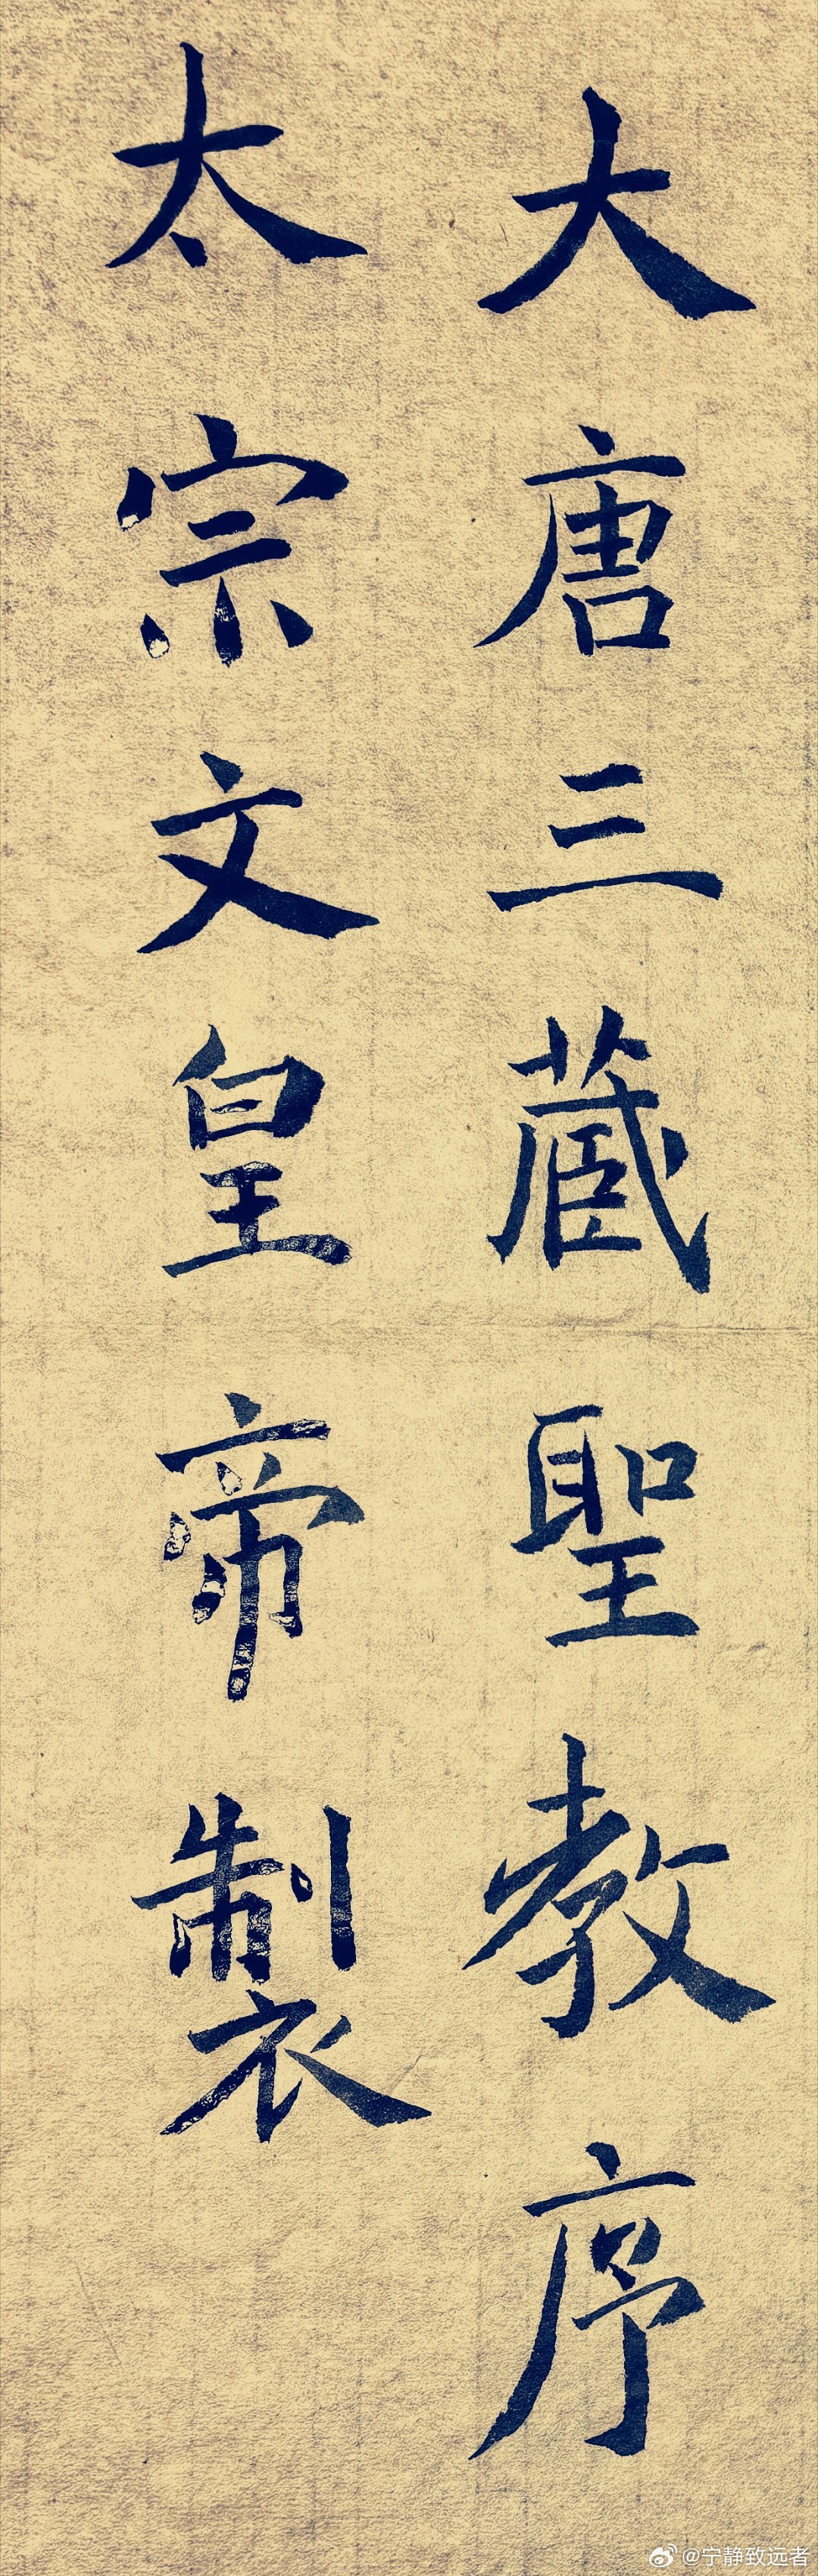 大唐三藏聖教序
太宗文皇帝製
@宁静致远者